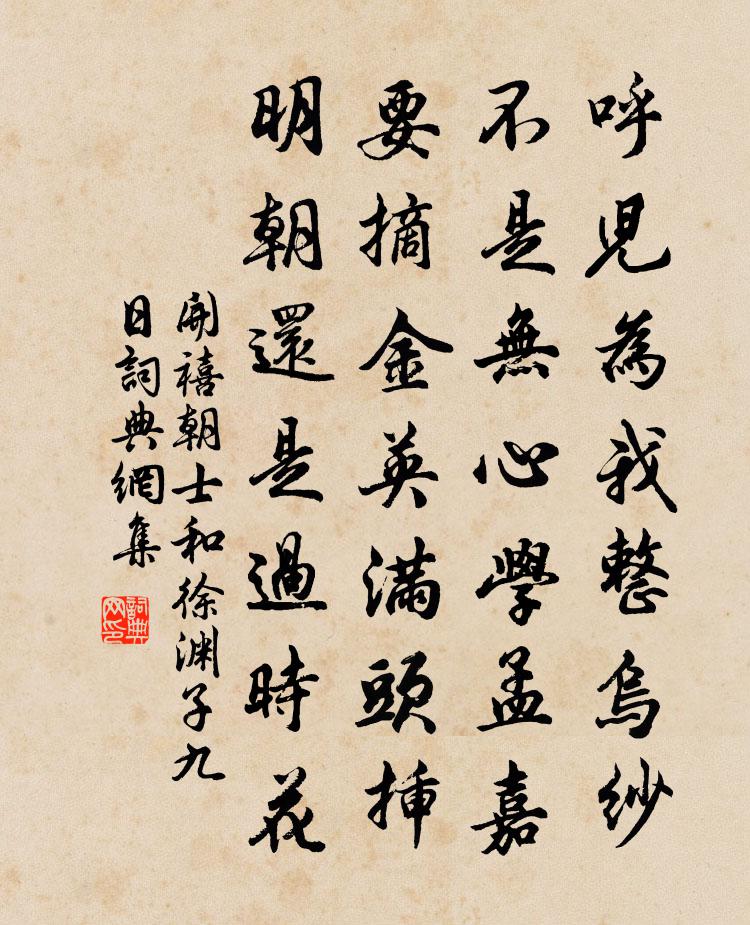 呼兒為我整烏紗
不是無心學孟嘉
要摘金英滿頭插
明朝還是過時花
開禧朝士和徐淵子九
日詞典網集
詞典
网印